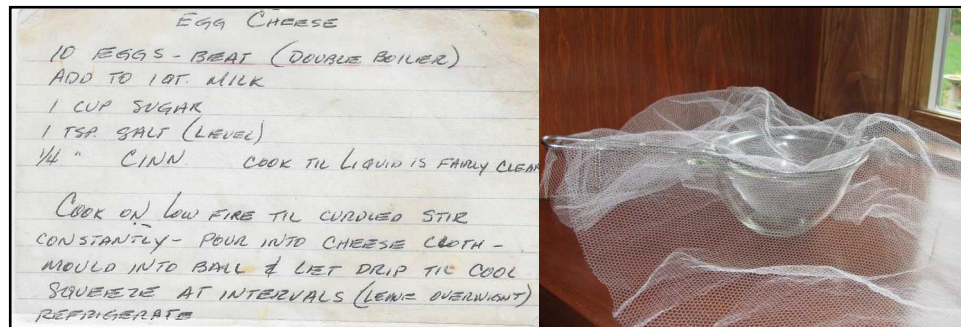 EGG CHEESE
10 EGGS - BEAT (DOUBLE BOILER)
ADD TO 1 QT. MILK
1 CUP SUGAR
1 TSP. SALT (LEVEL)
1/4 " CINN. COOK TIL LIQUID IS FAIRLY CLEAR
COOK ON LOW FIRE TIL CURDLED STIR
CONSTANTLY - POUR INTO CHEESE CLOTH -
MOULD INTO BALL & LET DRIP TIL COOL
SQUEEZE AT INTERVALS (LEAVE OVERNIGHT)
REFRIGERATE